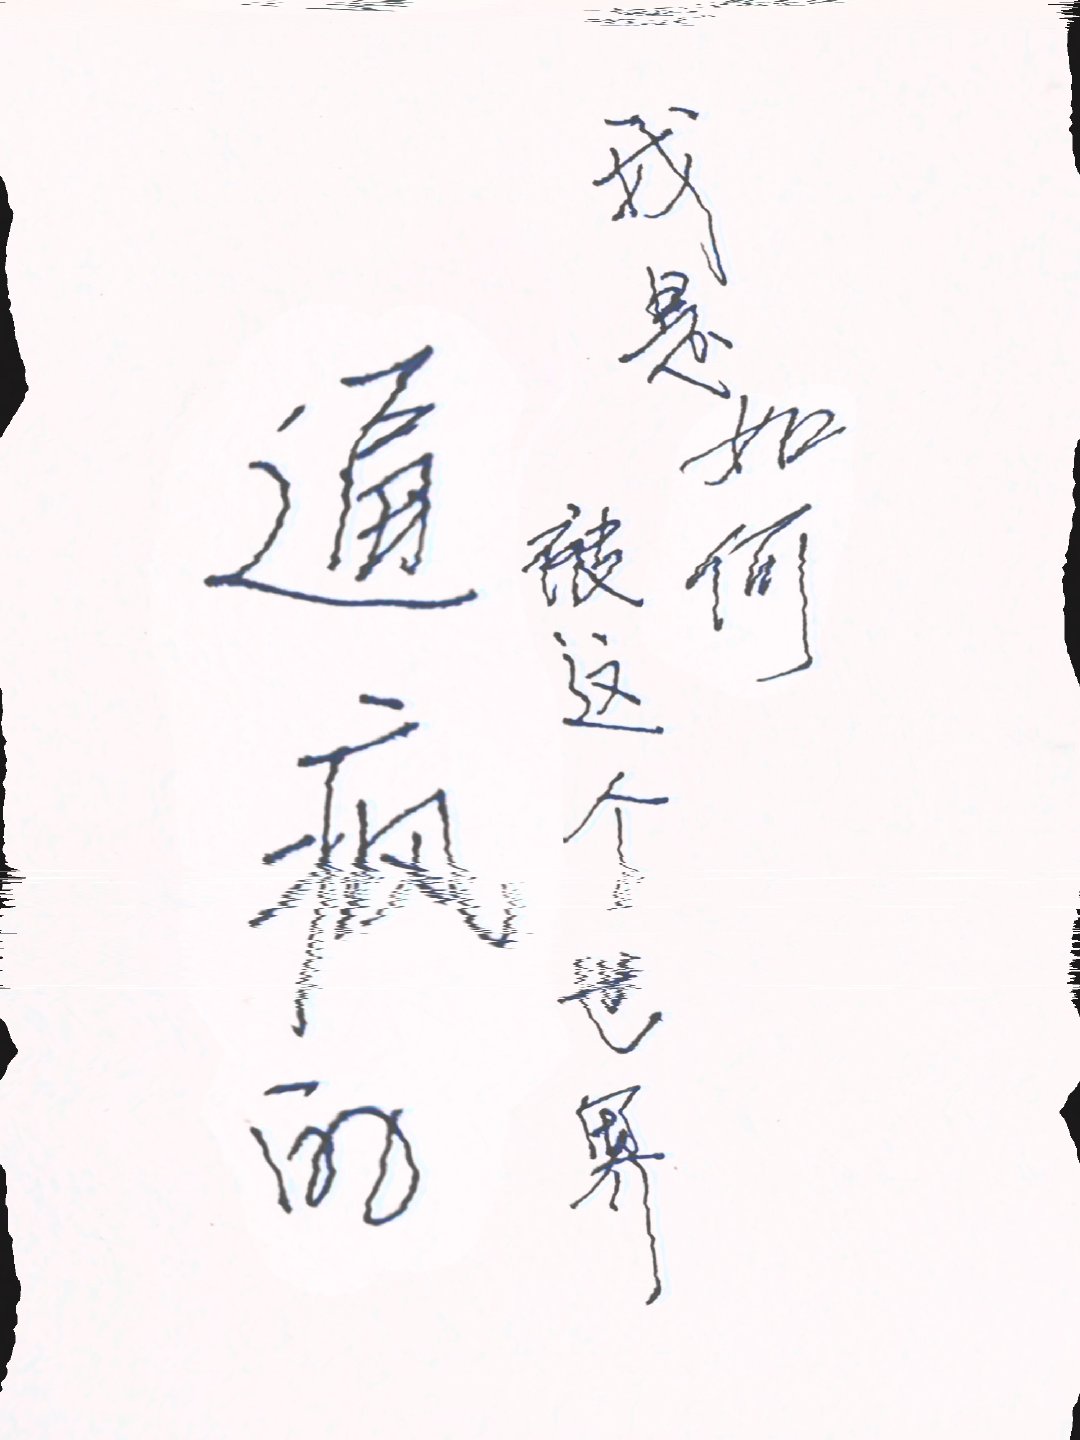 我是如何
被这个世界
逼疯的